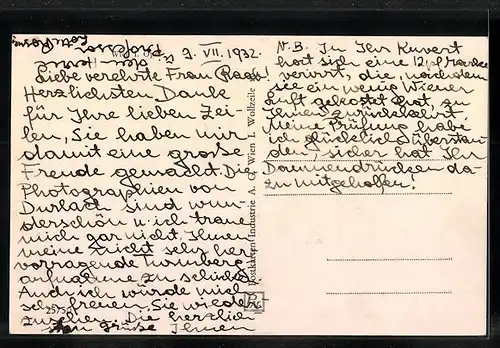 Wien, 9. VII. 1932.
Liebe verehrte Frau Raab!
Herzlichsten Dank
für Ihre lieben Zei-
len, Sie haben mir
damit eine große
Freude gemacht. Die
Photographien von
Durlach sind wun-
derschön u. ich traue
mich gar nicht, Ihnen
meine nicht sehr her-
vorragende Turmberg-
aufnahme zu schicken.
Auch ich würde mich
sehr freuen, Sie wieder
zu sehen. Die herzlich-
sten Grüße Ihnen
u. dem Herrn
Professor
N. B. In Ihr Kuvert
hat sich eine 12 pf Marke
verirrt, die, nachdem
sie ein wenig Wiener
Luft gekostet hat, zu
Ihnen zurückkehrt.
Meine Prüfung habe
ich glücklich überstan-
den, sicher hat Ihr
Daumendrücken da-
zu mitgeholfen!
Postkarten-Industrie A. G. Wien I. Wollzeile
25750